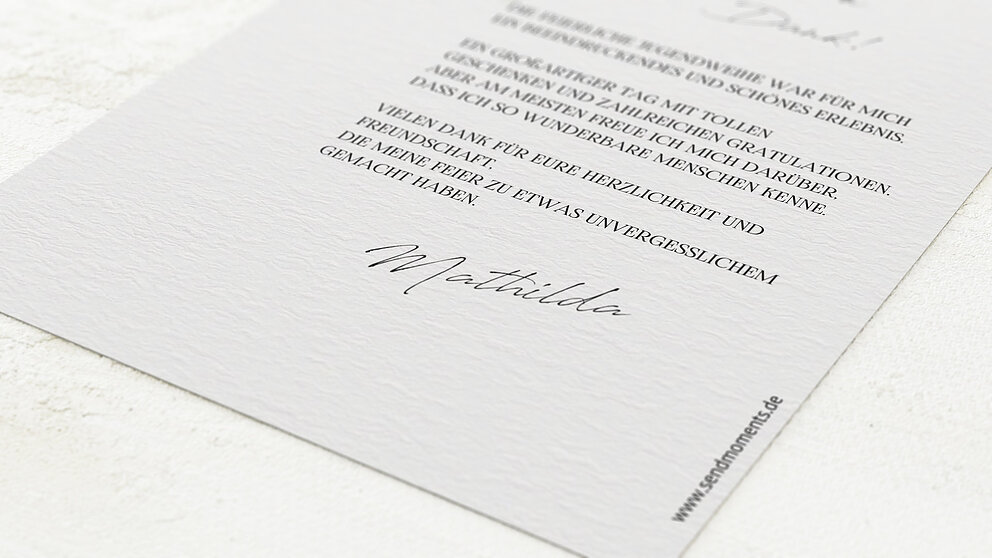 Dank!
DIE FEIERLICHE JUGENDWEIHE WAR FÜR MICH
EIN BEEINDRUCKENDES UND SCHÖNES ERLEBNIS.
EIN GROßARTIGER TAG MIT TOLLEN
GESCHENKEN UND ZAHLREICHEN GRATULATIONEN.
ABER AM MEISTEN FREUE ICH MICH DARÜBER,
DASS ICH SO WUNDERBARE MENSCHEN KENNE.
VIELEN DANK FÜR EURE HERZLICHKEIT UND
FREUNDSCHAFT.
DIE MEINE FEIER ZU ETWAS UNVERGESSLICHEM
GEMACHT HABEN.
Mathilda
www.sendmoments.de